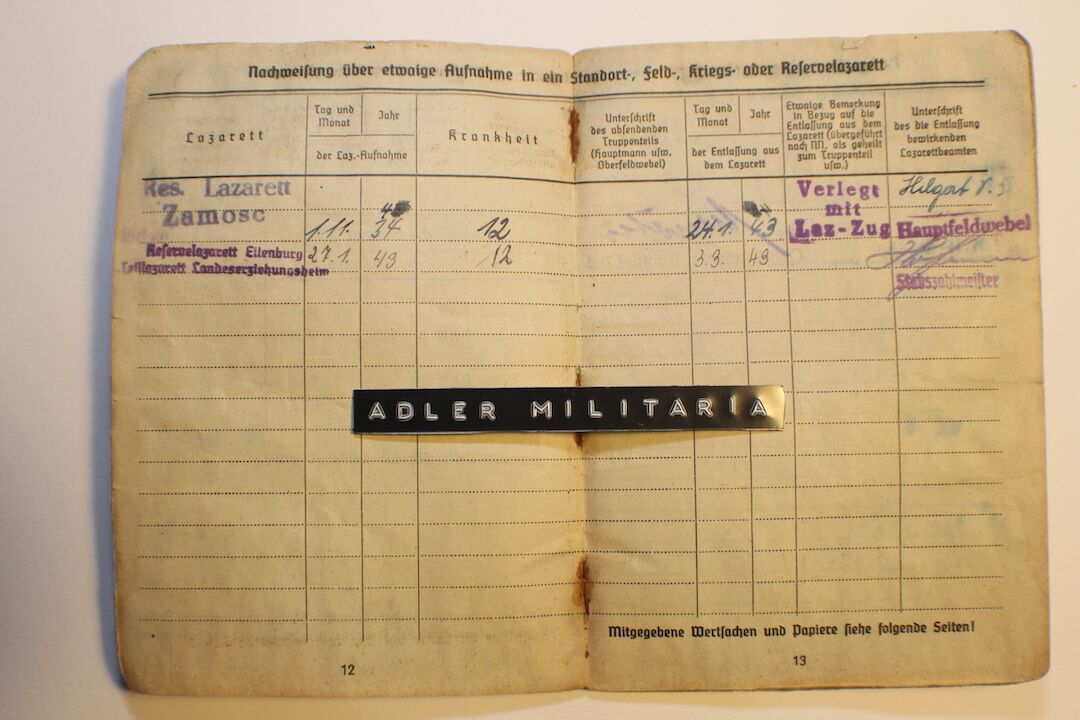 Nachweisung über etwaige Aufnahme in ein Standort-, Feld-, Kriegs- oder Reservelazarett
Lazarett
Tag und Monat
Jahr
der Laz.-Aufnahme
Krankheit
Unterschrift
des absendenden
Truppenteils
(Hauptmann usw.
Oberfeldwebel)
Tag und Monat
Jahr
der Entlassung aus
dem Lazarett
Etwaige Bemerkung
in Bezug auf die
Entlassung aus dem
Lazarett (übergeführt
nach NN. als geheilt
zum Truppenteil
usw.)
Unterschrift
des die Entlassung
bewirkenden
Lazarettbeamten
Res. Lazarett
Zamosc
12
24.1. 43
Verlegt
mit
Laz-Zug
Hauptfeldwebel
Reservelazarett Eilenburg
Teillazarett Landeserziehungsheim
27.1. 43
12
3.3. 43
Stabszahlmeister
ADLER MILITARIA
Mitgegebene Wertsachen und Papiere siehe folgende Seiten!
12
13